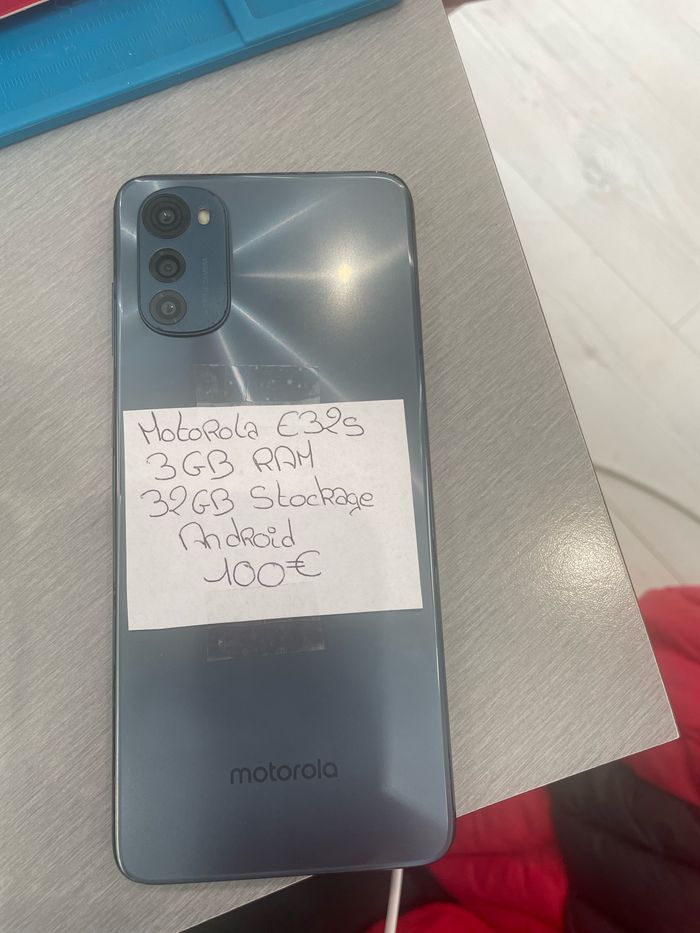 Motorola E32s
3GB RAM
32GB Stockage
Android
100€
motorola